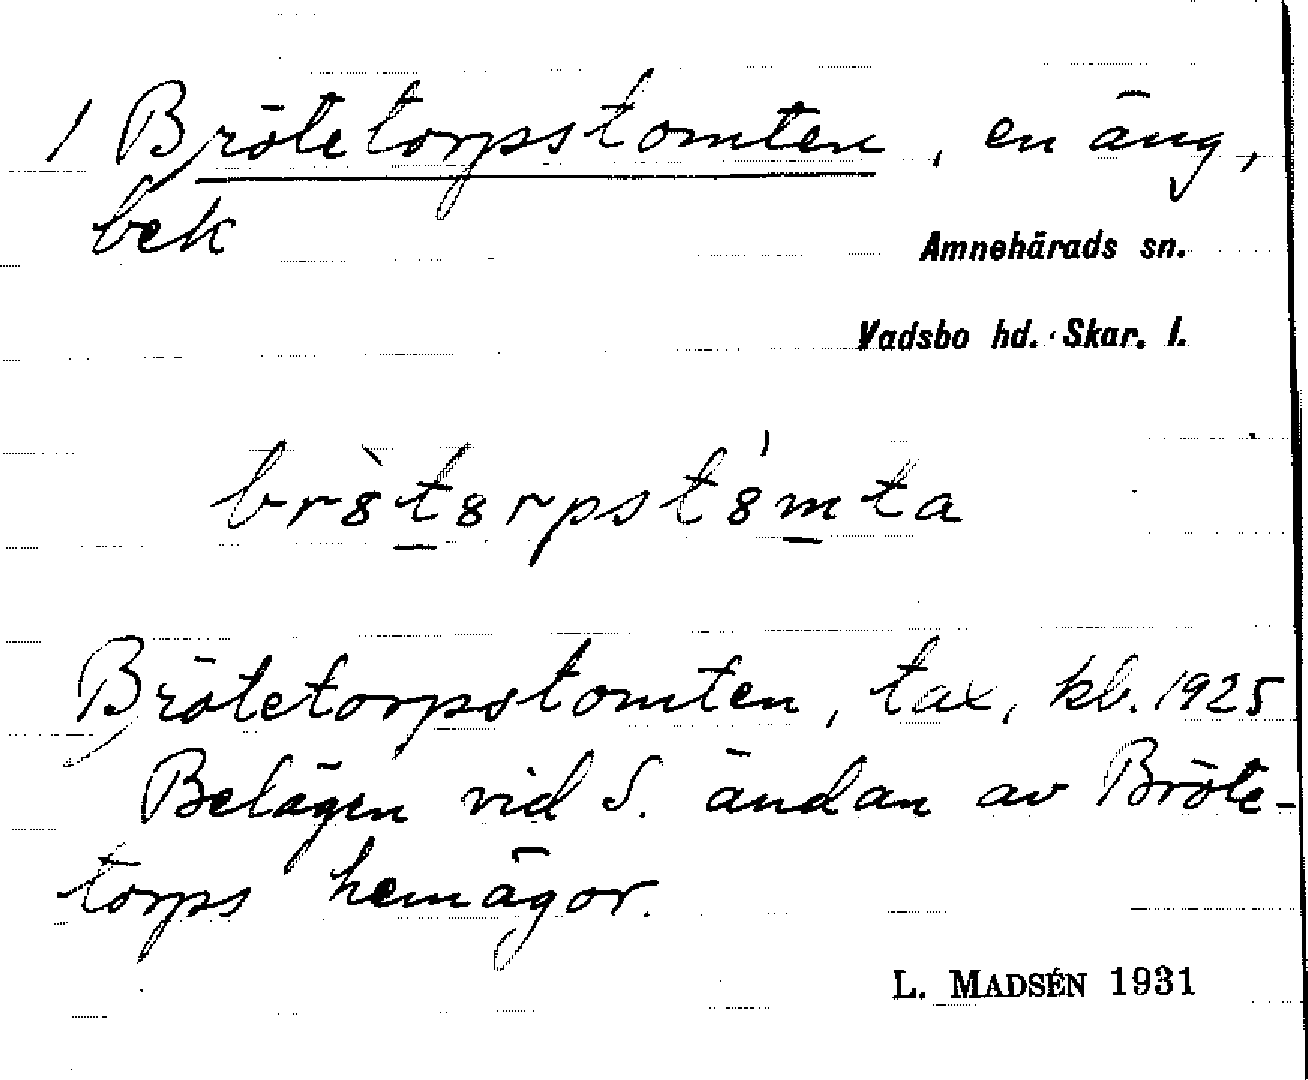 1 Brötetorpstomten, en äng,
bek
Amnehärads sn.
Vadsbo hd. Skar. l.
br8̀t8rpst8́mta
Brötetorpstomten, tax, kb. 1925
Belägen vid S. ändan av Bröte-
torps hemägor.
L. MADSÉN 1931